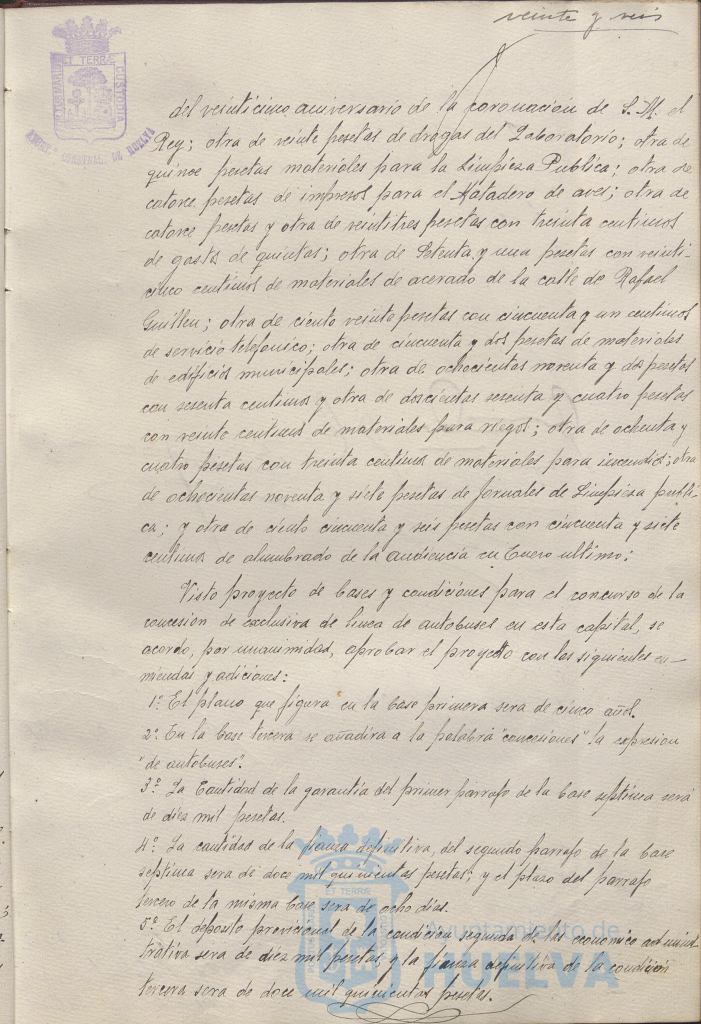 veinte y seis
ET TERRÆ
CUSTODIA
HUELVA
del veinticinco aniversario de la coronacion de S. M. el
Rey; otra de veinte pesetas de drogas del Laboratorio; otra de
quince pesetas materiales para la Limpieza Publica; otra de
catorce pesetas de impresos para el Matadero de aves; otra de
catorce pesetas y otra de veintitres pesetas con treinta centimos
de gastos de quintas; otra de Setenta y una pesetas con veinti-
cinco centimos de materiales de acerado de la calle de Rafael
Guillen; otra de ciento veinte pesetas con cincuenta y un centimos
de servicio telefonico; otra de cincuenta y dos pesetas de materiales
de edificios municipales; otra de ochocientas noventa y dos pesetas
con sesenta centimos y otra de doscientas sesenta y cuatro pesetas
con veinte centimos de materiales para riegos; otra de ochenta y
cuatro pesetas con treinta centimos de materiales para incendios; otra
de ochocientas noventa y siete pesetas de jornales de Limpieza públi-
ca; y otra de ciento cincuenta y seis pesetas con cincuenta y siete
centimos de alumbrado de la audiencia en Enero ultimo;
Visto proyecto de bases y condiciones para el concurso de la
concesion de exclusiva de linea de autobuses en esta capital, se
acordó, por unanimidad, aprobar el proyecto con las siguientes en-
miendas y adiciones:
1ª El plano que figura en la base primera sera de cinco años.
2ª En la base tercera se añadira a la palabra "concesiones" la expresion
"de autobuses".
3ª La Cantidad de la garantía del primer parrafo de la base septima será
de diez mil pesetas.
4ª La cantidad de la fianza definitiva, del segundo parrafo de la base
septima sera de doce mil quinientas pesetas; y el plazo del parrafo
tercero de la misma base sera de ocho dias.
5ª El deposito provisional de la condicion segunda de las economico adminis
trativa sera de diez mil pesetas y la fianza definitiva de la condición
tercera sera de doce mil quinientas pesetas.
ET TERRÆ
Ayuntamiento de
HUELVA